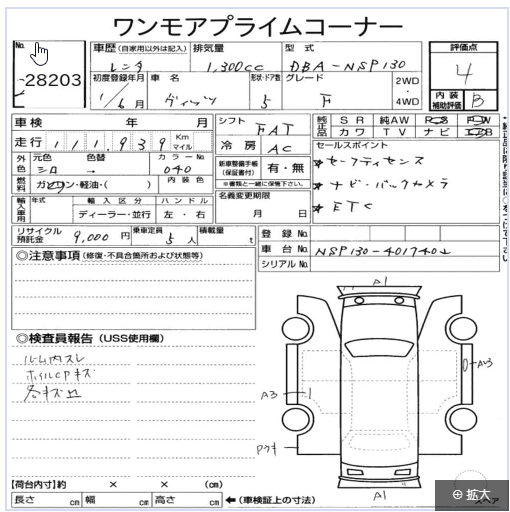 ワンモアプライムコーナー
No. 28203
車歴(自家用以外は記入) レンタ
排気量 1,300cc
型式 DBA-NSP130
評価点 4
初度登録年月 1/6月
車名 ヴィッツ
形状・ドア数 5
グレード F
2WD・4WD
内装補助評価 B
車検 年 月
シフト FAT
純正品 SR 純AW PS PW
カワ TV ナビ エアB
走行 111,939 Km マイル
冷房 AC
セールスポイント
外色 元色 シロ 色替 → カラーNo. 040
★セーフティセンス
新車整備手帳(保証書付) 有・無
※書類と一緒に保管下さい。
燃料 ガソリン・軽油・( ) 内装色
★ナビ・バックカメラ
名義変更期限 月 日
★ETC
輸入車用 年式 輸入区分 ディーラー・並行 ハンドル 左・右
リサイクル預託金 9,000円
乗車定員 5人
積載量 t
登録No.
車台No. NSP130-4017402
シリアルNo.
◎注意事項(修復・不具合箇所および状態等)
◎検査員報告(USS使用欄)
ルーム内スレ
ホイルCPキズ
各キズ凹
A1
A3
Pワキ
A1
【荷台内寸】約 × × (cm)
長さ cm 幅 cm 高さ cm ←(車検証上の寸法)
スペア
⊕拡大